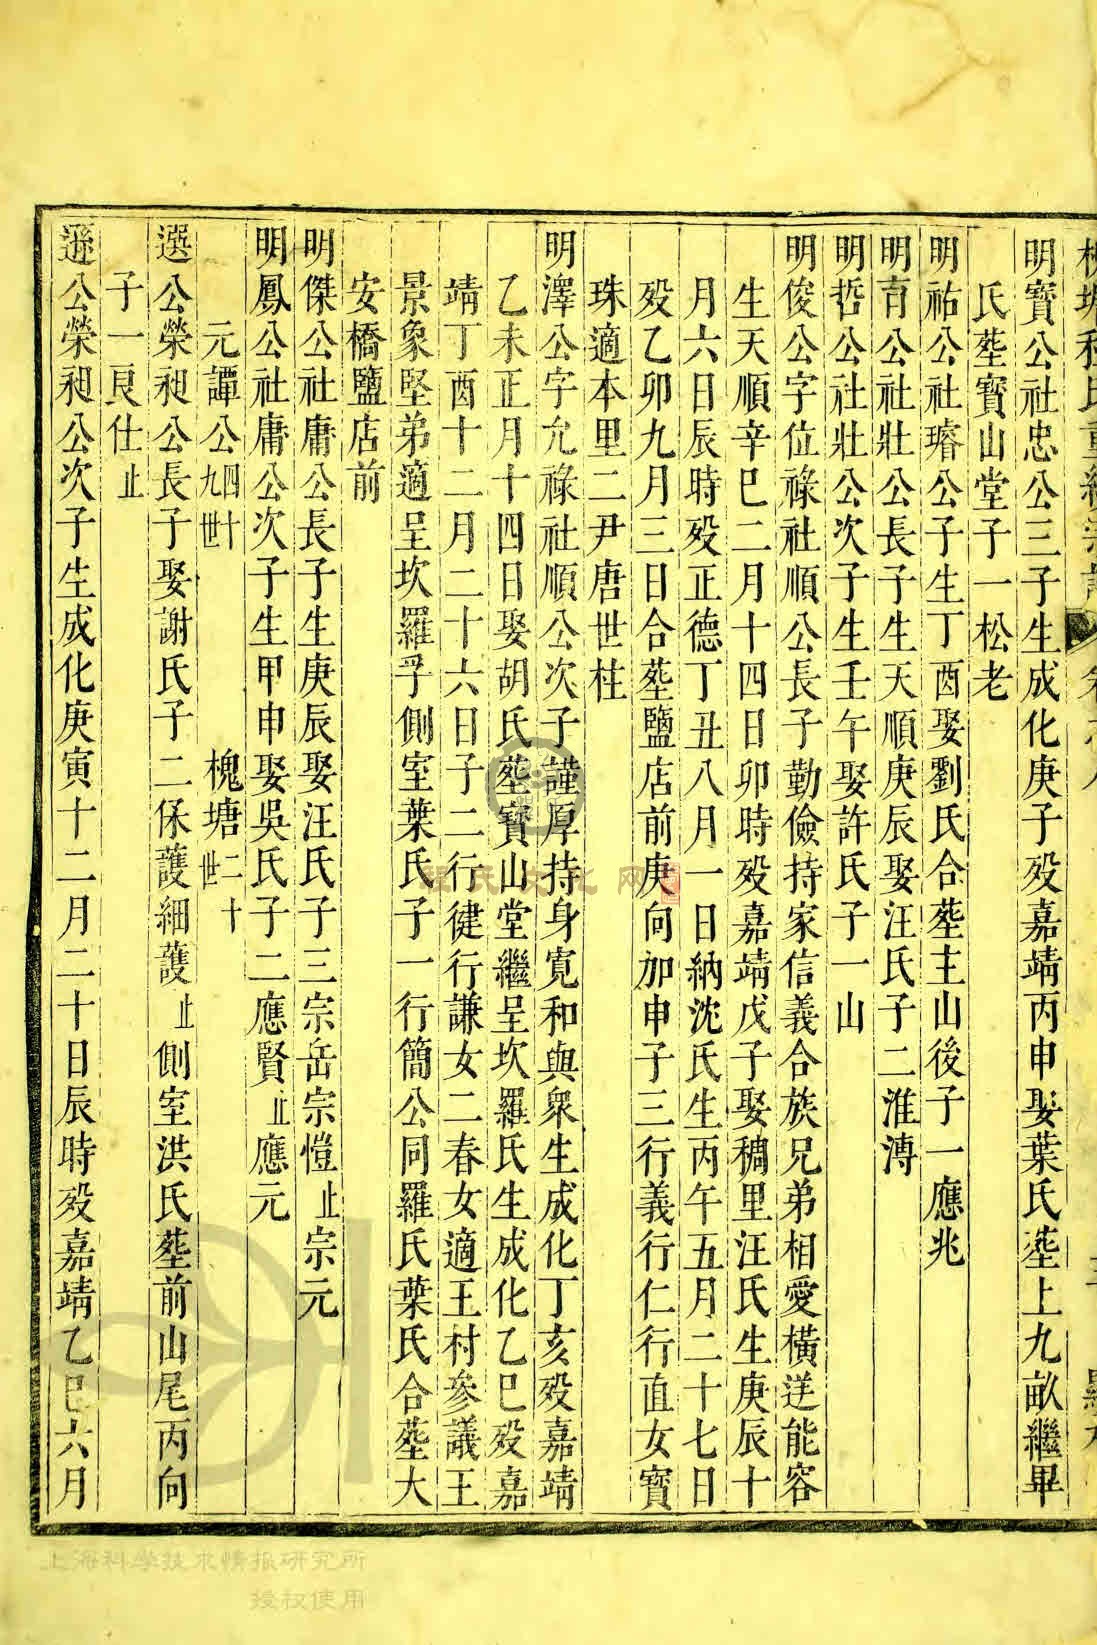 明寶公社忠公三子生成化庚子歿嘉靖丙申娶葉氏塟上九畝繼畢
氏塟寶山堂子一松老
明祐公社璿公子生丁酉娶劉氏合塟主山後子一應兆
明吉公社壯公長子生天順庚辰娶汪氏子二淮溥
明哲公社壯公次子生壬午娶許氏子一山
明俊公字位祿社順公長子勤儉持家信義合族兄弟相愛橫逆能容
生天順辛巳二月十四日卯時歿嘉靖戊子娶稠里汪氏生庚辰十
月六日辰時歿正德丁丑八月一日納沈氏生丙午五月二十七日
歿乙卯九月三日合塟鹽店前庚向加申子三行義行仁行直女寶
珠適本里二尹唐世桂
明澤公字允祿社順公次子謹厚持身寬和與衆生成化丁亥歿嘉靖
乙未正月十四日娶胡氏塟寶山堂繼呈坎羅氏生成化乙巳歿嘉
靖丁酉十二月二十六日子二行健行謙女二春女適王村參議王
景象堅弟適呈坎羅孚側室葉氏子一行簡公同羅氏葉氏合塟大
安橋鹽店前
明傑公社庸公長子生庚辰娶汪氏子三宗岳宗愷止宗元
明鳳公社庸公次子生甲申娶吳氏子二應賢止應元
元譚公四十九世 槐塘二十世
選公榮昶公長子娶謝氏子二保護細護止側室洪氏塟前山尾丙向
子一良仕止
遜公榮昶公次子生成化庚寅十二月二十日辰時歿嘉靖乙巳六月
程氏文化网
上海科学技术情报研究所
授权使用